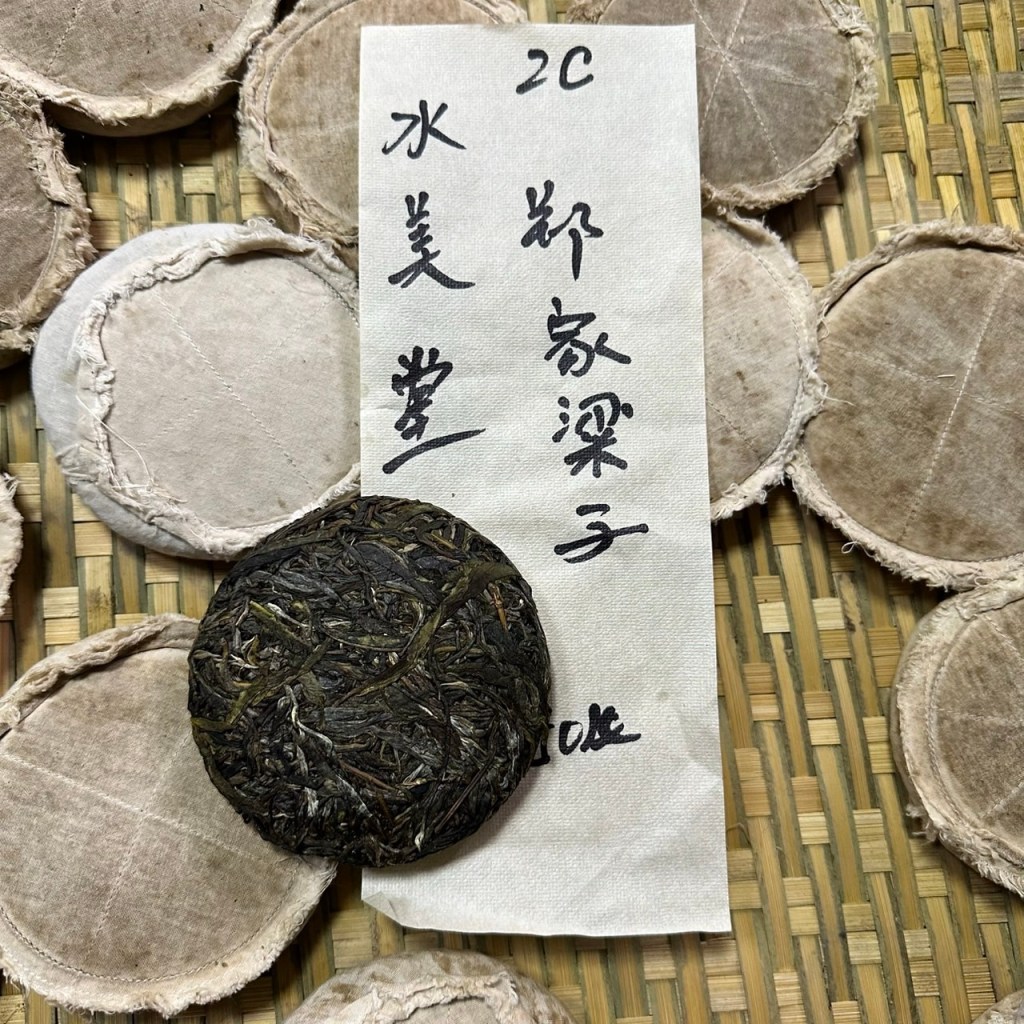 2C
郑家梁子
水美堂